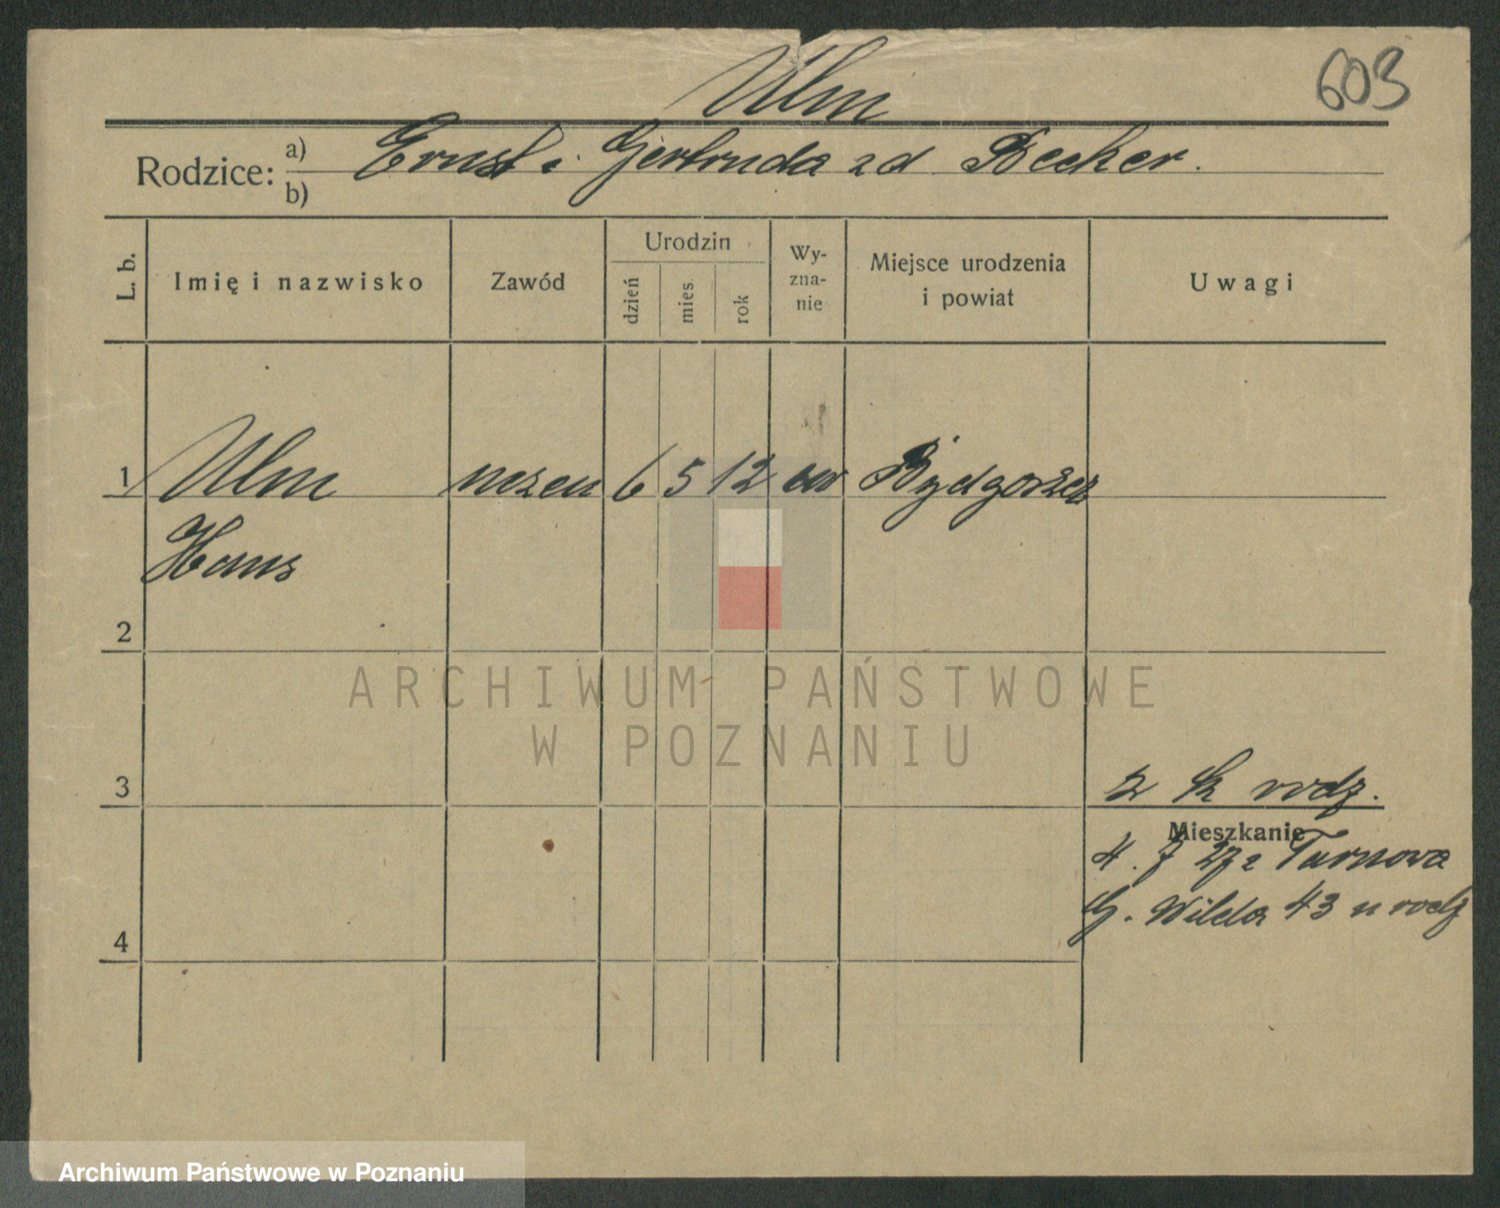 603
Ulm
Rodzice: a) Ernst i Gertruda zd Becker.
b)
L. b.
Imię i nazwisko
Zawód
Urodzin
dzień
mies.
rok
Wy-
zna-
nie
Miejsce urodzenia
i powiat
Uwagi
1 Ulm uczeń 6 5 12 ew Bydgoszcz
Hans
2
3
z k rodz.
Mieszkanie
4. 7 27 z Turnowa
G. Wilda 43 u rodz
4
ARCHIWUM PAŃSTWOWE
W POZNANIU
Archiwum Państwowe w Poznaniu